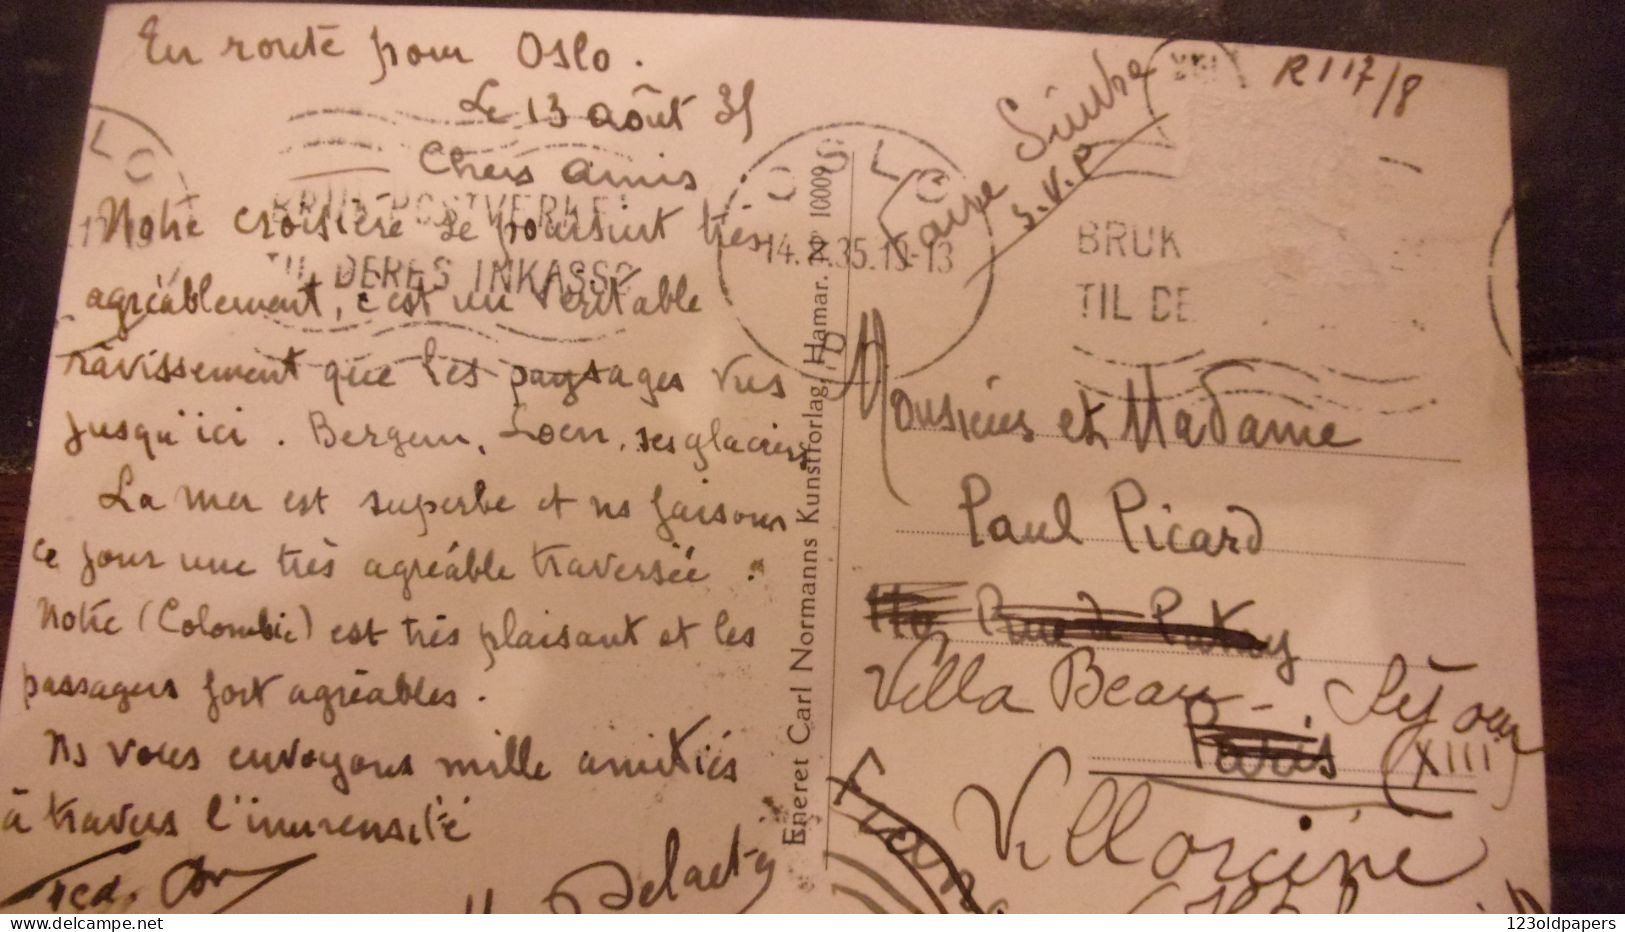 En route pour Oslo.
Le 13 août 35
Chers amis
Notre croisière se poursuit très
agréablement, c'est un véritable
ravissement que les paysages vus
jusqu'ici. Bergen, Loen, ses glaciers
La mer est superbe et ns faisons
ce jour une très agréable traversée.
Notre (Colombie) est très plaisant et les
passagers fort agréables.
Ns vous envoyons mille amitiés
à travers l'immensité
Delaet
Eneret Carl Normanns Kunstforlag, Hamar. 10009
OSLO
14. 35.
BRUK POSTVERKET
TIL DERES INKASSO
BRUK
TIL DE
R 117/8
Faire Suivre
S.V.P
Monsieur et Madame
Paul Picard
Rue de Patay
Villa Beau-Séjour
Paris (XIII)
France
123oldpapers